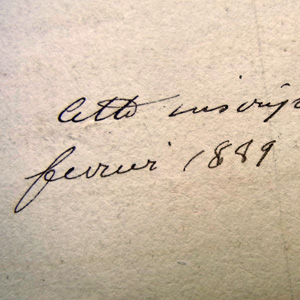 cette inscrip
fevrier 1889